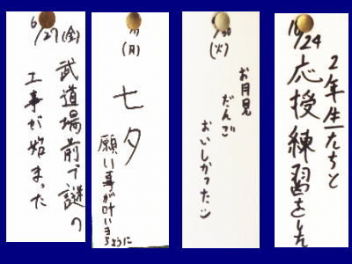 6/27(金)
武道場前で謎の
工事が始まった
7/7
(月)
七夕
願い事が叶いますように
(火)
お月見
だんご
おいしかった
10/24
2年生たちと
応援練習をした